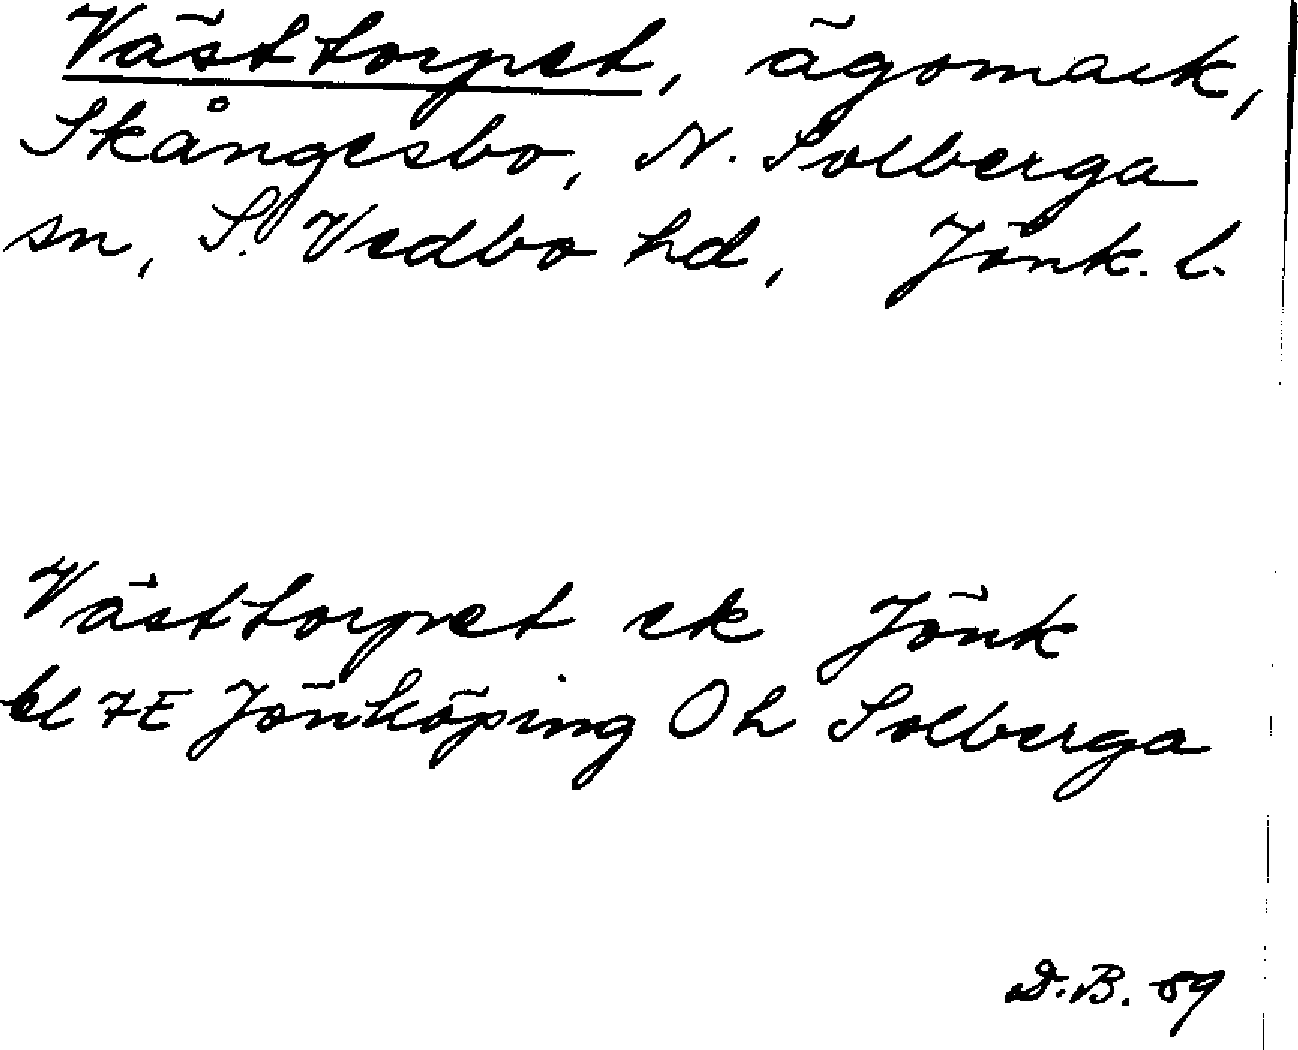 Västtorpet, ägomark,
Skångesbo, N. Solberga
sn, S. Vedbo hd, Jönk. l.
Västtorpet ek Jönk
bl 7E Jönköping Oh Solberga
D.B. 59